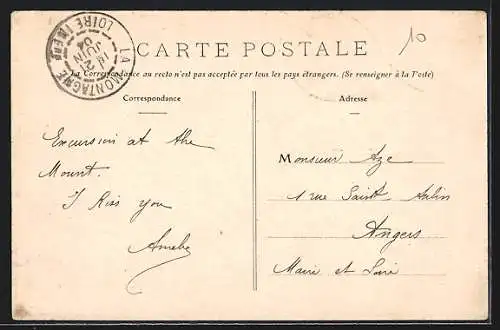 LA MONTAGNE
LOIRE INFRE
21
JUIN
04
CARTE POSTALE
10
La Correspondance au recto n'est pas acceptée par tous les pays étrangers. (Se renseigner à la Poste)
Correspondance
Adresse
Excursion at the
Mount.
I kiss you
Monsieur Aze
1 rue Saint Aubin
Angers
Maine et Loire